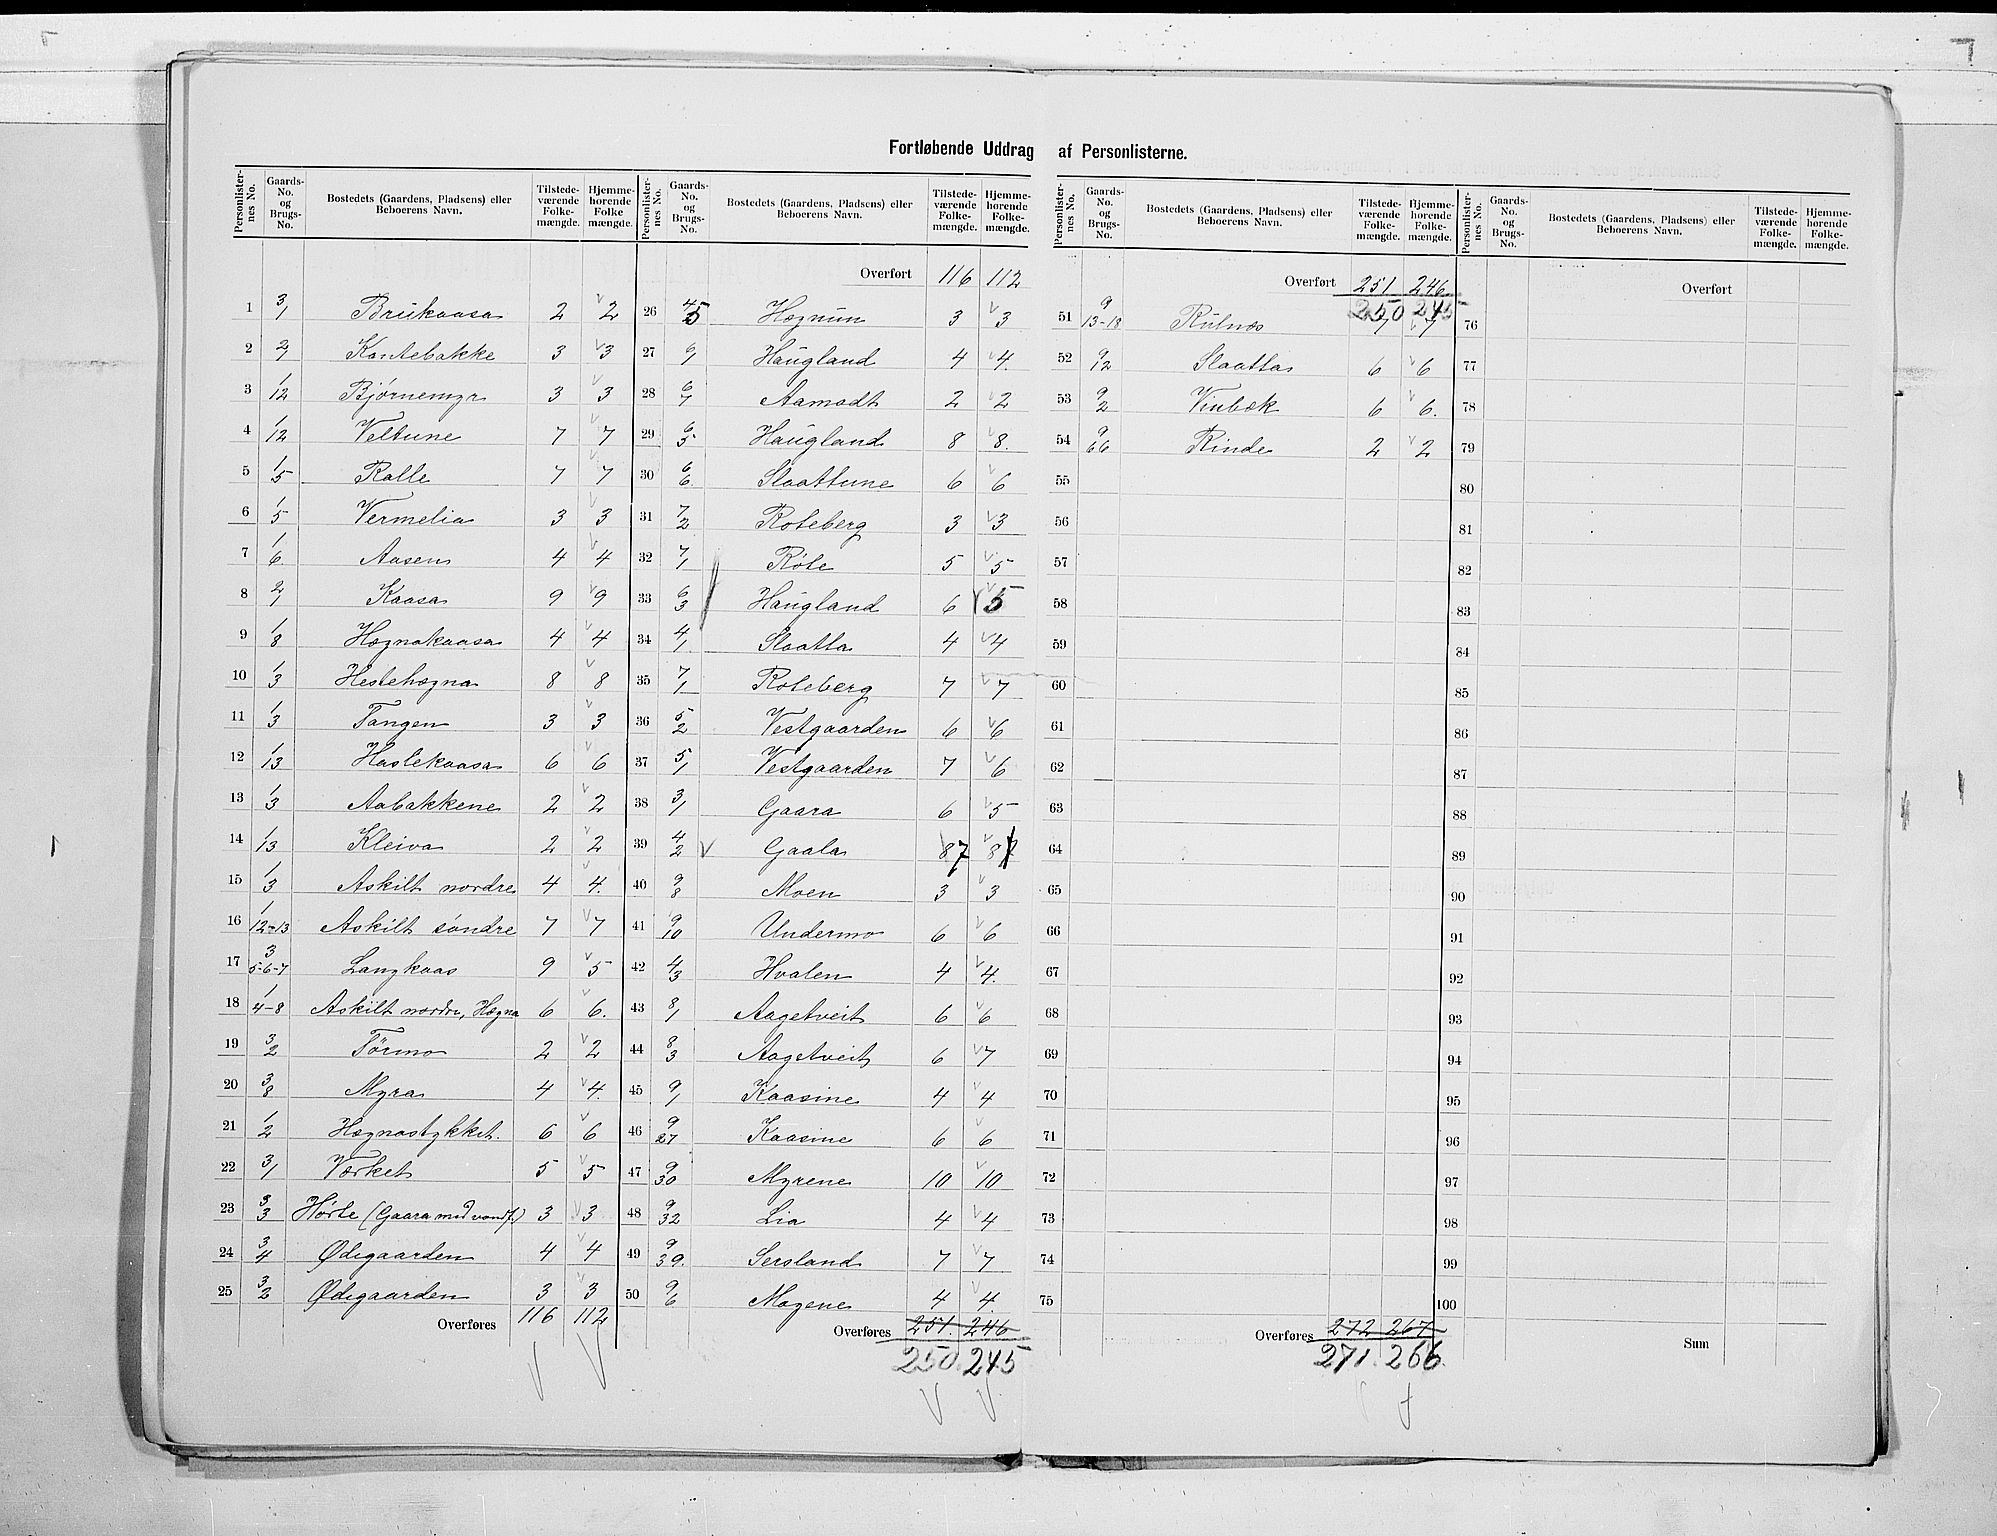 Fortløbende Uddrag af Personlisterne.
Personlisternes No. | Gaards-No. og Brugs-No. | Bostedets (Gaardens, Pladsens) eller Beboerens Navn. | Tilstedeværende Folkemængde. | Hjemmehørende Folkemængde.
1 | 3/1 | Briskaasa | 2 | 2
2 | 2/1 | Kantebakke | 3 | 3
3 | 1/12 | Bjørnemyr | 3 | 3
4 | 1/12 | Veltune | 7 | 7
5 | 1/5 | Ralle | 7 | 7
6 | 1/5 | Vermelia | 3 | 3
7 | 1/6 | Aasen | 4 | 4
8 | 2/1 | Kaasa | 9 | 9
9 | 1/8 | Høgnakaasa | 4 | 4
10 | 1/3 | Hestehøgna | 8 | 8
11 | 1/3 | Tangen | 3 | 3
12 | 1/13 | Haslekaasa | 6 | 6
13 | 1/3 | Aabakkene | 2 | 2
14 | 1/13 | Kleiva | 2 | 2
15 | 1/3 | Askilt nordre | 4 | 4.
16 | 1/12-13 | Askilt søndre | 7 | 7
17 | 3/5-6-7 | Langkaas | 9 | 5
18 | 1/4-8 | Askilt nordre, Høgna | 6 | 6.
19 | 3/2 | Tørmo | 2 | 2
20 | 3/8 | Myra | 4 | 4.
21 | 1/2 | Høgnastykket. | 6 | 6
22 | 3/1 | Værket | 5 | 5
23 | 3/3 | Hørte (Gaara med vandf.) | 3 | 3
24 | 3/4 | Ødegaarden | 4 | 4
25 | 3/2 | Ødegaarden | 3 | 3
Overføres 116 112
Personlisternes No. | Gaards-No. og Brugs-No. | Bostedets (Gaardens, Pladsens) eller Beboerens Navn. | Tilstedeværende Folkemængde. | Hjemmehørende Folkemængde.
Overført 116 112
26 | Høgnun | 3 | 3
27 | 6/1 | Haugland | 4 | 4.
28 | 6/7 | Aamodt | 2 | 2
29 | 6/5 | Haugland | 8 | 8.
30 | 6/6 | Slaattune | 6 | 6
31 | 7/2 | Roteberg | 3 | 3
32 | 7/1 | Røte | 5 | 5
33 | 6/3 | Haugland | 6 | 5
34 | 4/1 | Slaatta | 4 | 4
35 | 7/1 | Roteberg | 7 | 7
36 | 5/2 | Vestgaarden | 6 | 6
37 | 5/1 | Vestgaarden | 7 | 6
38 | 3/1 | Gaara | 6 | 5
39 | 4/2 | Gaala | 8 7 | 8 7
40 | 9/8 | Moen | 3 | 3
41 | 9/10 | Undermo | 6 | 6
42 | 4/3 | Hvalen | 4 | 4.
43 | 8/1 | Aagetveit | 6 | 6
44 | 8/3 | Aagetveit | 6 | 7
45 | 9/1 | Kaasine | 4 | 4
46 | 9/27 | Kaasine | 6 | 6
47 | 9/30 | Myrene | 10 | 10
48 | 9/32 | Lia | 4 | 4
49 | 9/39. | Sersland | 7 | 7
50 | 9/6 | Mogene | 4 | 4.
Overføres 251. 246
250. 245
Personlisternes No. | Gaards-No. og Brugs-No. | Bostedets (Gaardens, Pladsens) eller Beboerens Navn. | Tilstedeværende Folkemængde. | Hjemmehørende Folkemængde.
Overført 251 246
250 245
51 | 9/13-18 | Rulnæs | 7 | 7
52 | 9/12 | Slaatta | 6 | 6
53 | 9/2 | Vinbæk | 6 | 6.
54 | 9/66 | Rinde | 2 | 2
55
56
57
58
59
60
61
62
63
64
65
66
67
68
69
70
71
72
73
74
75
Overføres 272 267
271. 266.
Personlisternes No. | Gaards-No. og Brugs-No. | Bostedets (Gaardens, Pladsens) eller Beboerens Navn. | Tilstedeværende Folkemængde. | Hjemmehørende Folkemængde.
Overført
76
77
78
79
80
81
82
83
84
85
86
87
88
89
90
91
92
93
94
95
96
97
98
99
100
Sum